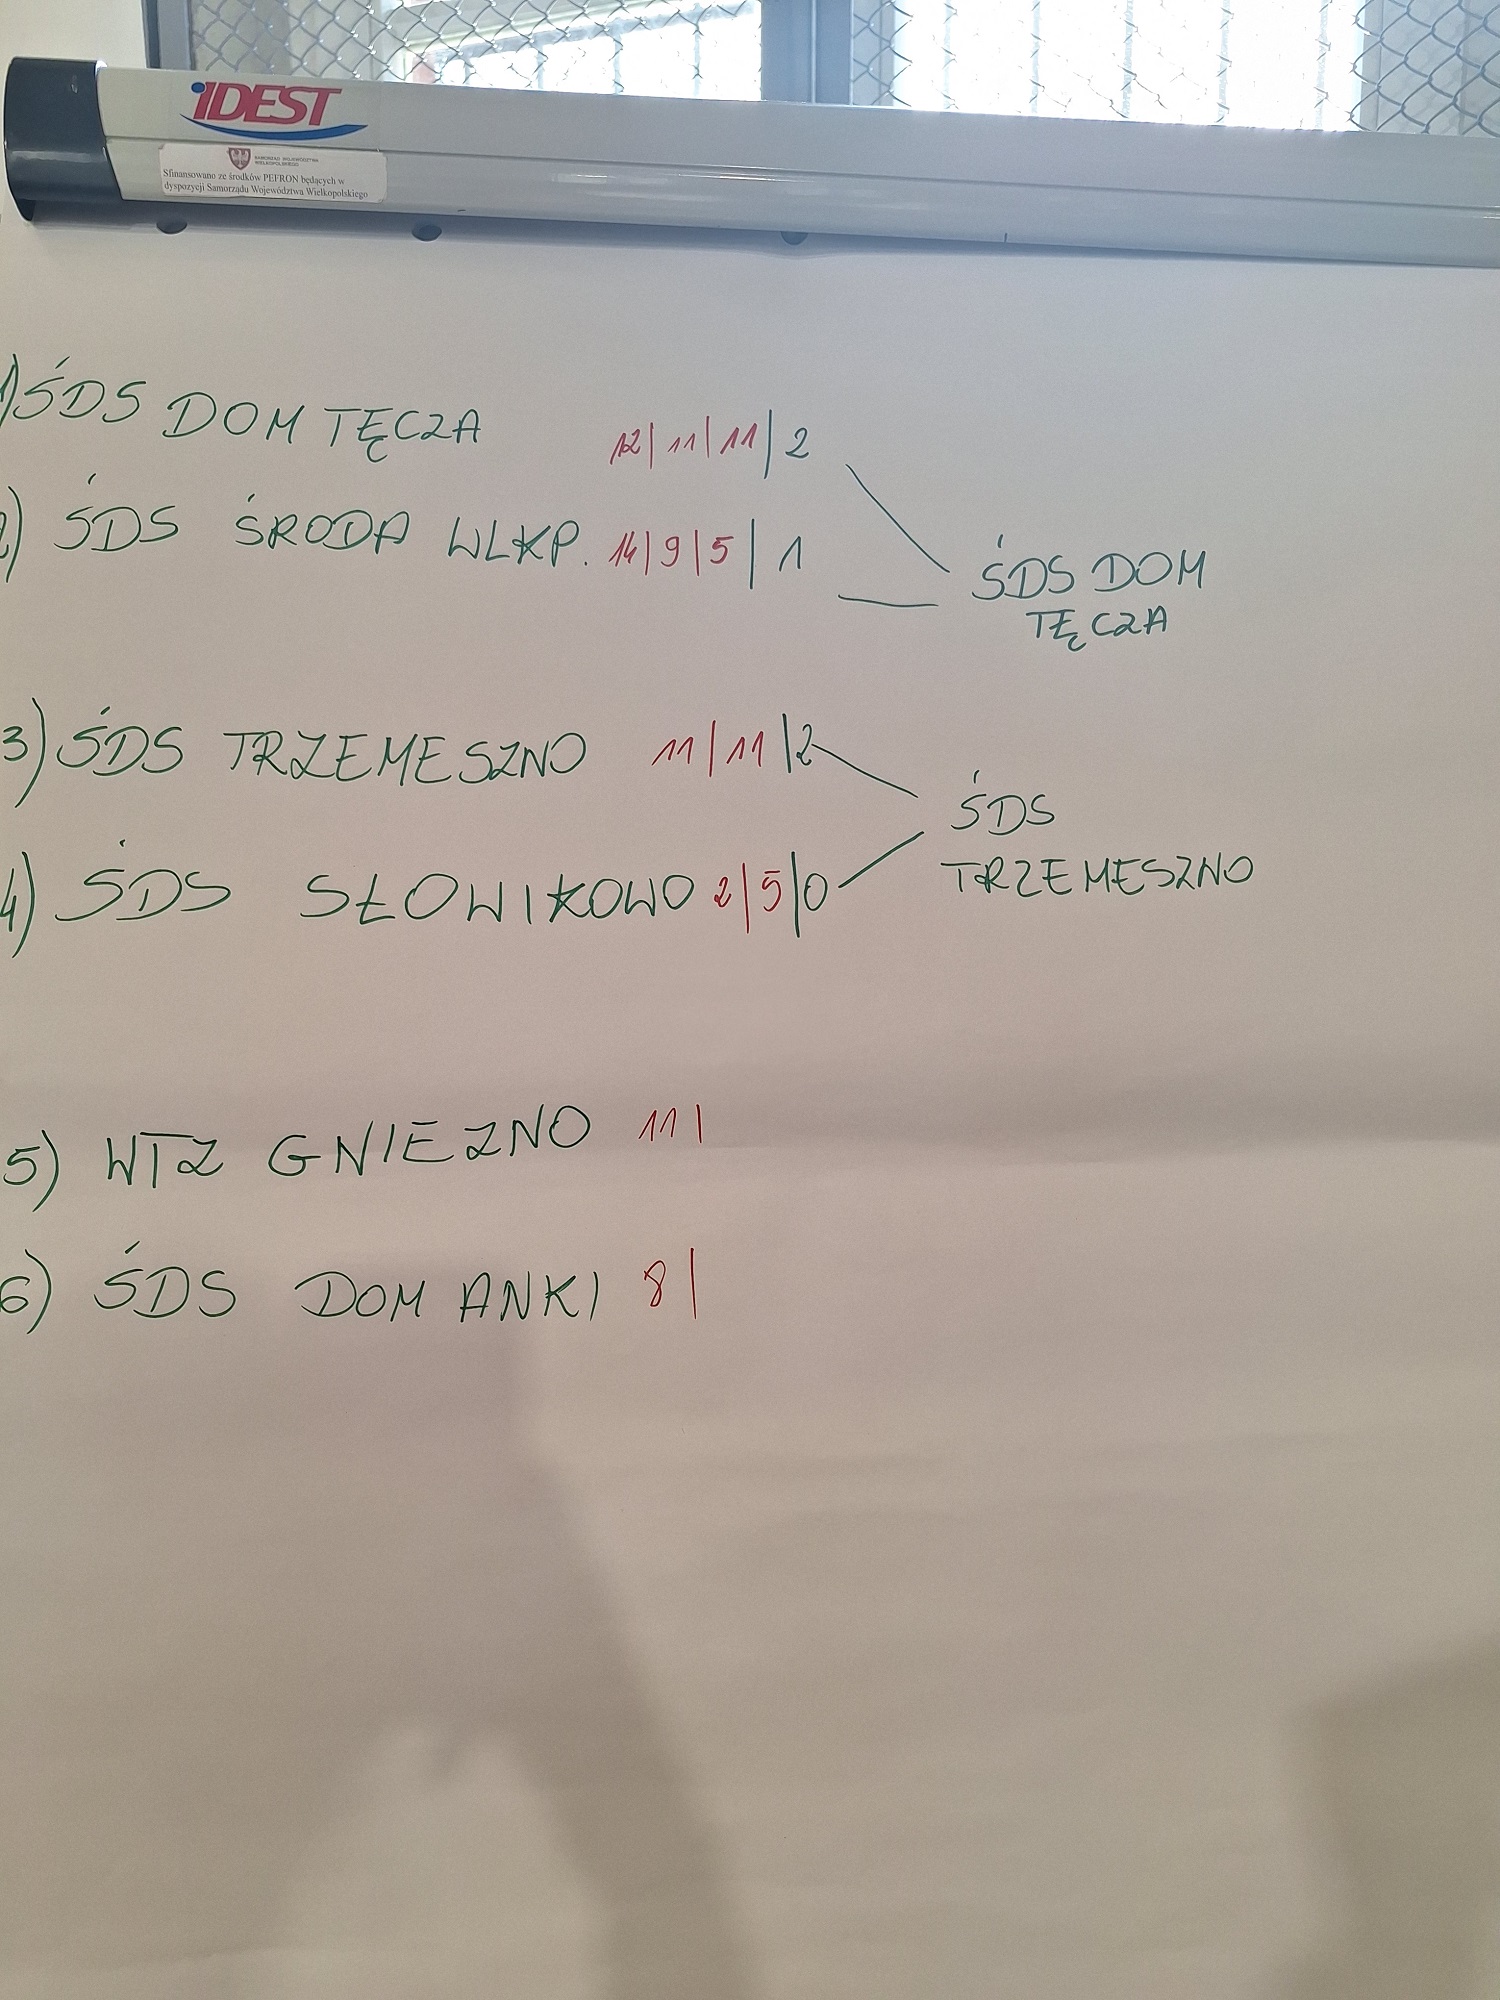 iDEST
SAMORZĄD WOJEWÓDZTWA
WIELKOPOLSKIEGO
Sfinansowano ze środków PEFRON będących w
dyspozycji Samorządu Województwa Wielkopolskiego
1) ŚDS DOM TĘCZA 12| 11| 11| 2
2) ŚDS ŚRODA WLKP. 14|9|5| 1
ŚDS DOM
TĘCZA
3) ŚDS TRZEMESZNO 11|11|2
4) ŚDS SŁOWIKOWO 2|5|0
ŚDS
TRZEMESZNO
5) WTZ GNIEZNO 11|
6) ŚDS DOM ANKI 8|